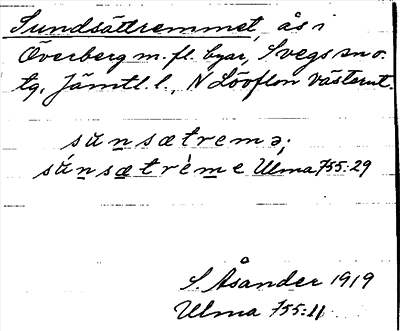 Sundsättremmet, ås i
Överberg m. fl. byar, Svegs sn o.
tg, Jämtl. l., N Lövflon västerut.
sùnsætremə;
súnsætrème Ulma 755:29
S. Åsander 1919
Ulma 755:11